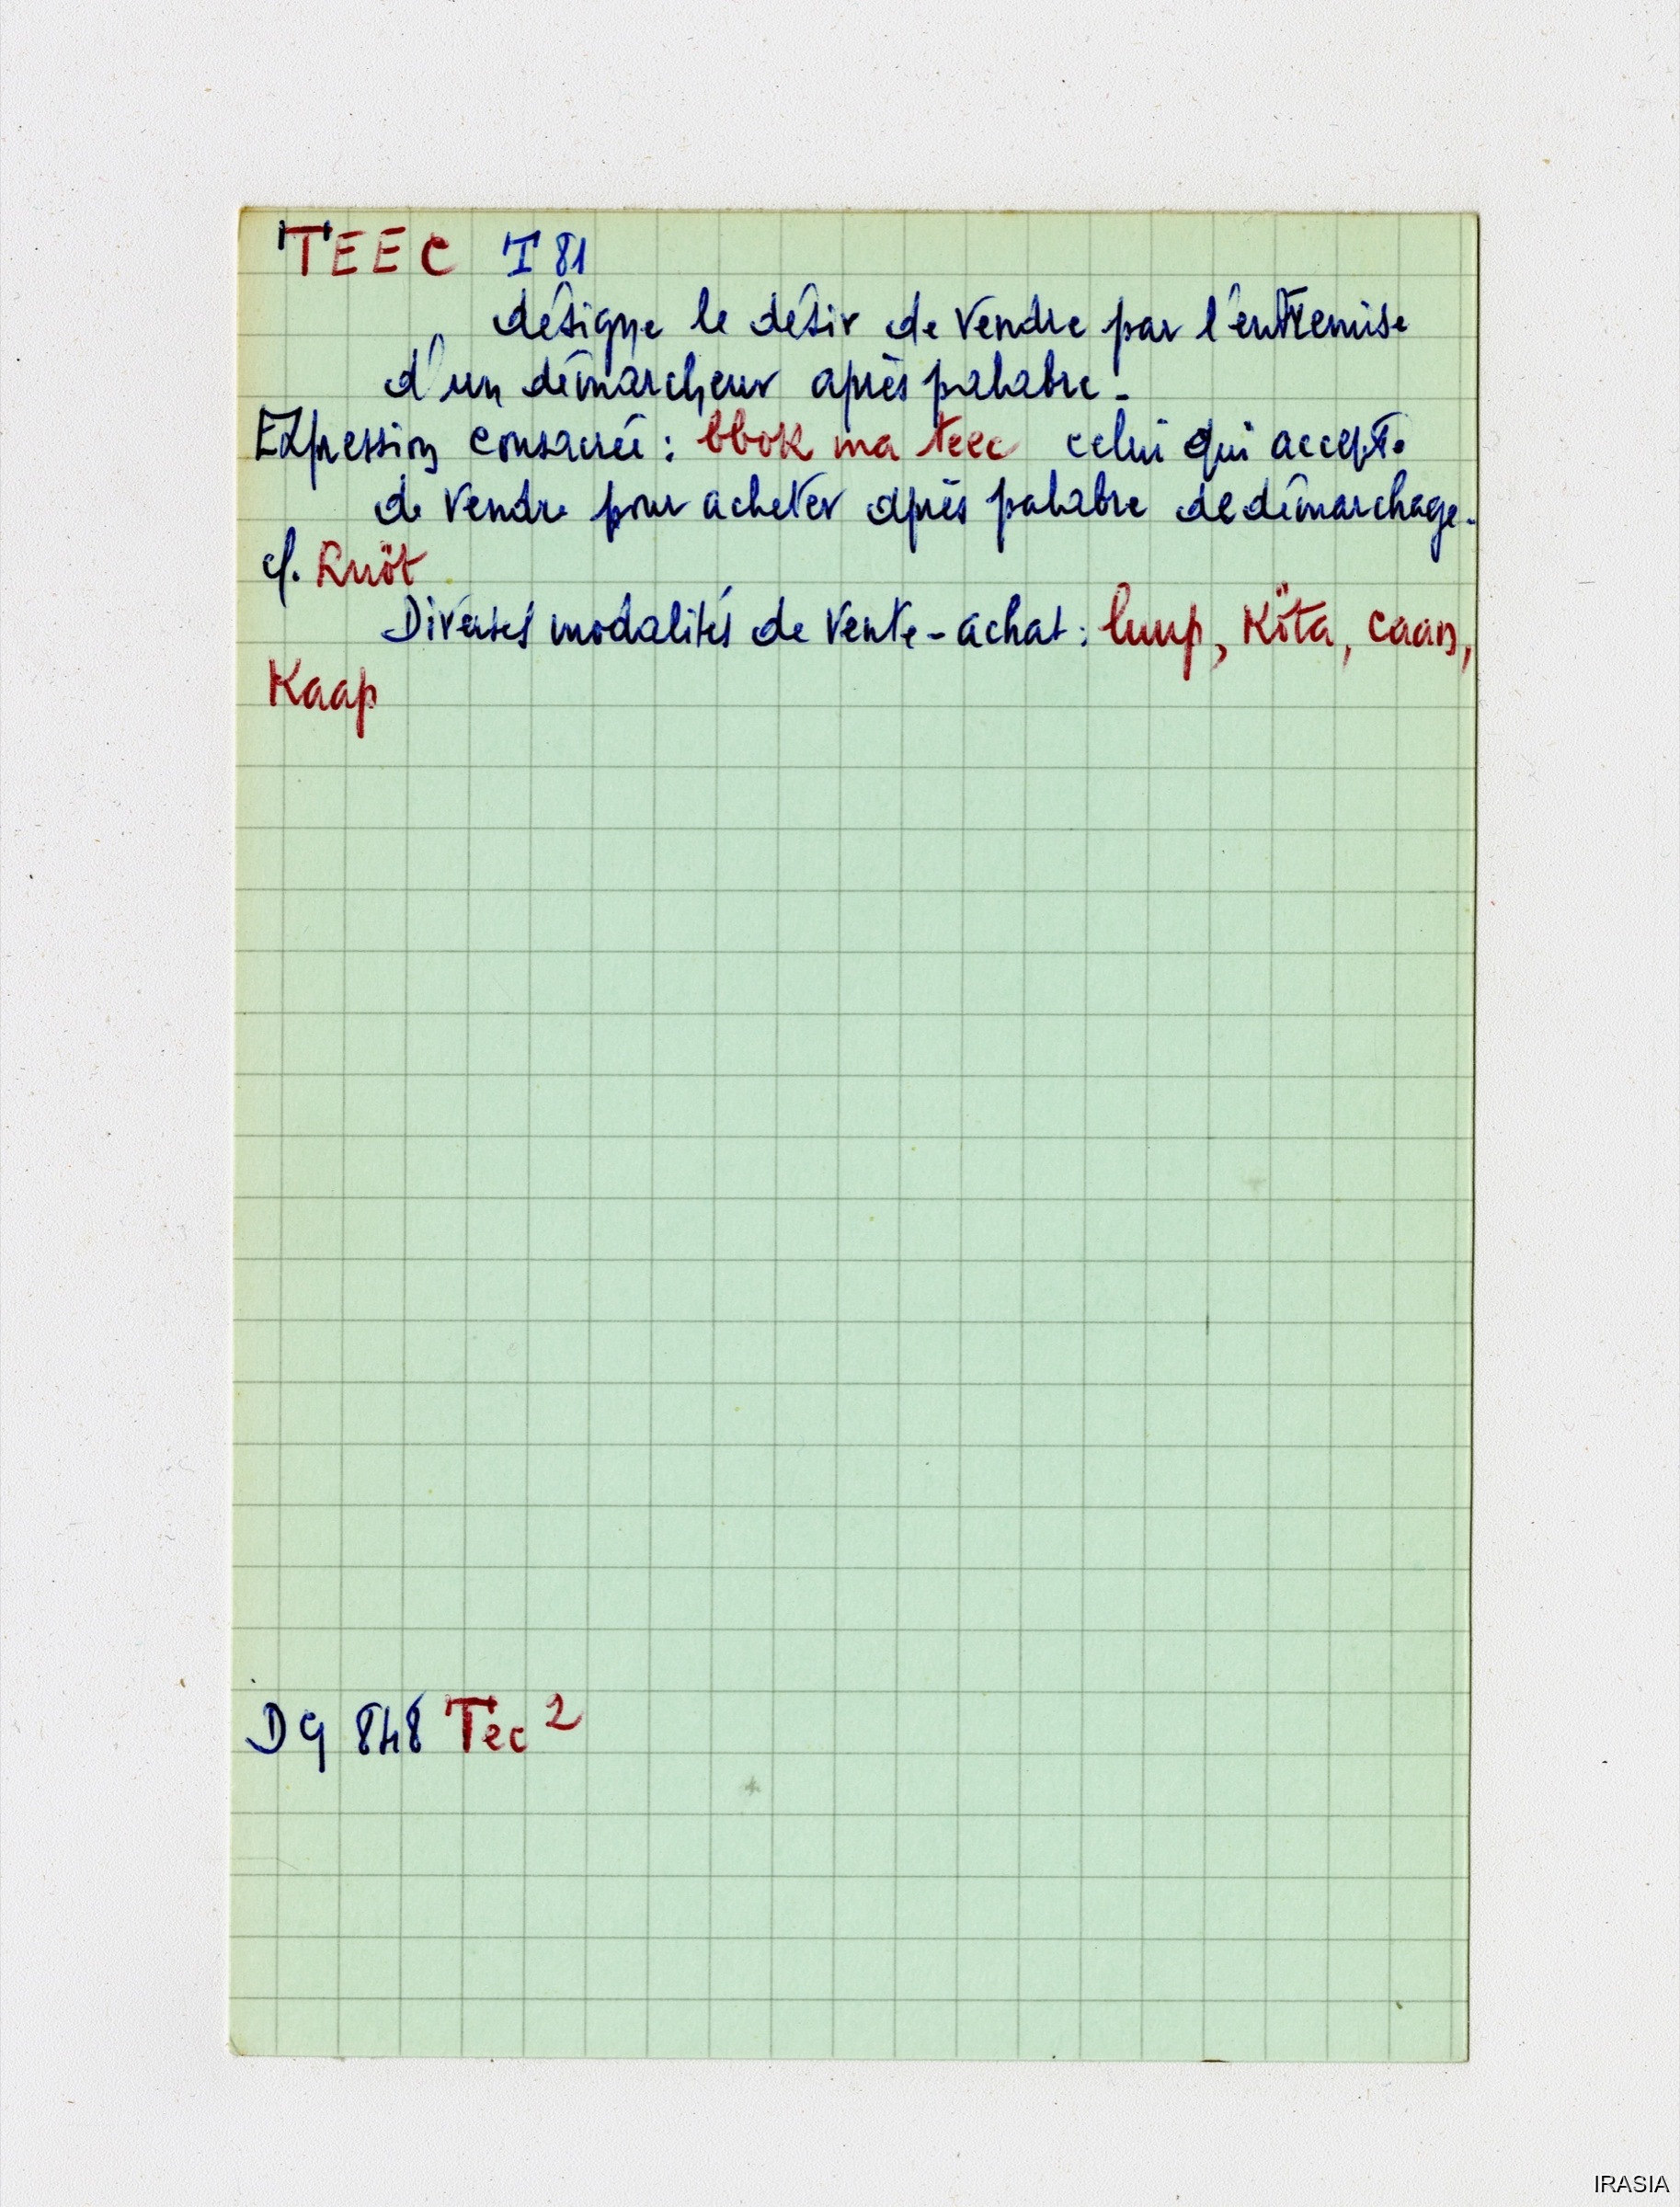 TEEC I 81
désigne le désir de vendre par l'entremise
d'un démarcheur après palabre_
Expression consacrée : bbok ma teec celui qui accepte
de vendre pour acheter après palabre de démarchage.
cf. Ruöt
Diverses modalités de vente-achat : luup, Köta, caan,
Kaap
DG 848 Tec 2
IRASIA